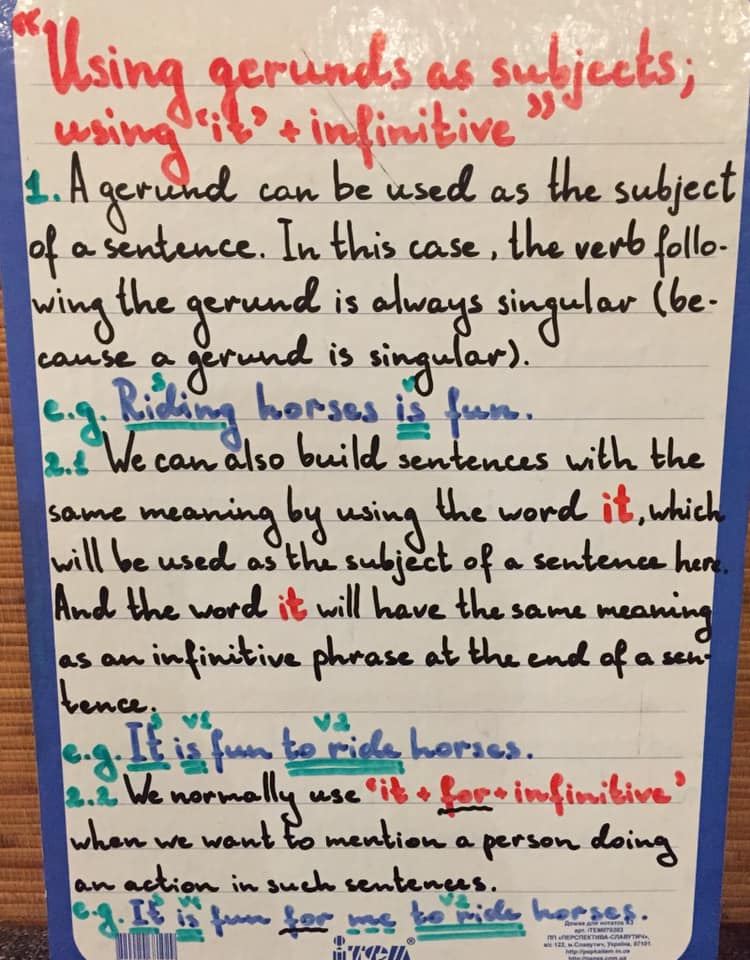 "Using gerunds as subjects;
using 'it' + infinitive"
1. A gerund can be used as the subject
of a sentence. In this case, the verb follo-
wing the gerund is always singular (be-
cause a gerund is singular).
s v
e.g. Riding horses is fun.
2.1 We can also build sentences with the
same meaning by using the word it, which
will be used as the subject of a sentence here.
And the word it will have the same meaning
as an infinitive phrase at the end of a sen-
tence.
s v1 v2
e.g. It is fun to ride horses.
2.2 We normally use 'it + for + infinitive'
when we want to mention a person doing
an action in such sentences.
s v1 v2
e.g. It is fun for me to ride horses.
item®
Дошка для нотаток А3
арт. ITEM078283
ПП «ПЕРСПЕКТИВА-СЛАВУТИЧ»,
а/с 122, м.Славутич, Україна, 07101
http://papkadam.in.ua